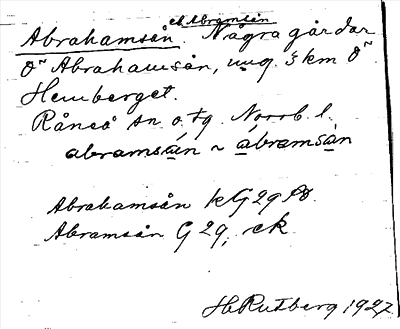 ek Abramsån
Abrahamsån. Några gårdar
O~ Abrahamsån, ung. 3 km O~
Hemberget.
Råneå sn o. tg. Norrb. l.
abramsån ~ ábramsàn
Abrahamsån kG2g
Abramsån G2g, ek
HRutberg 1927